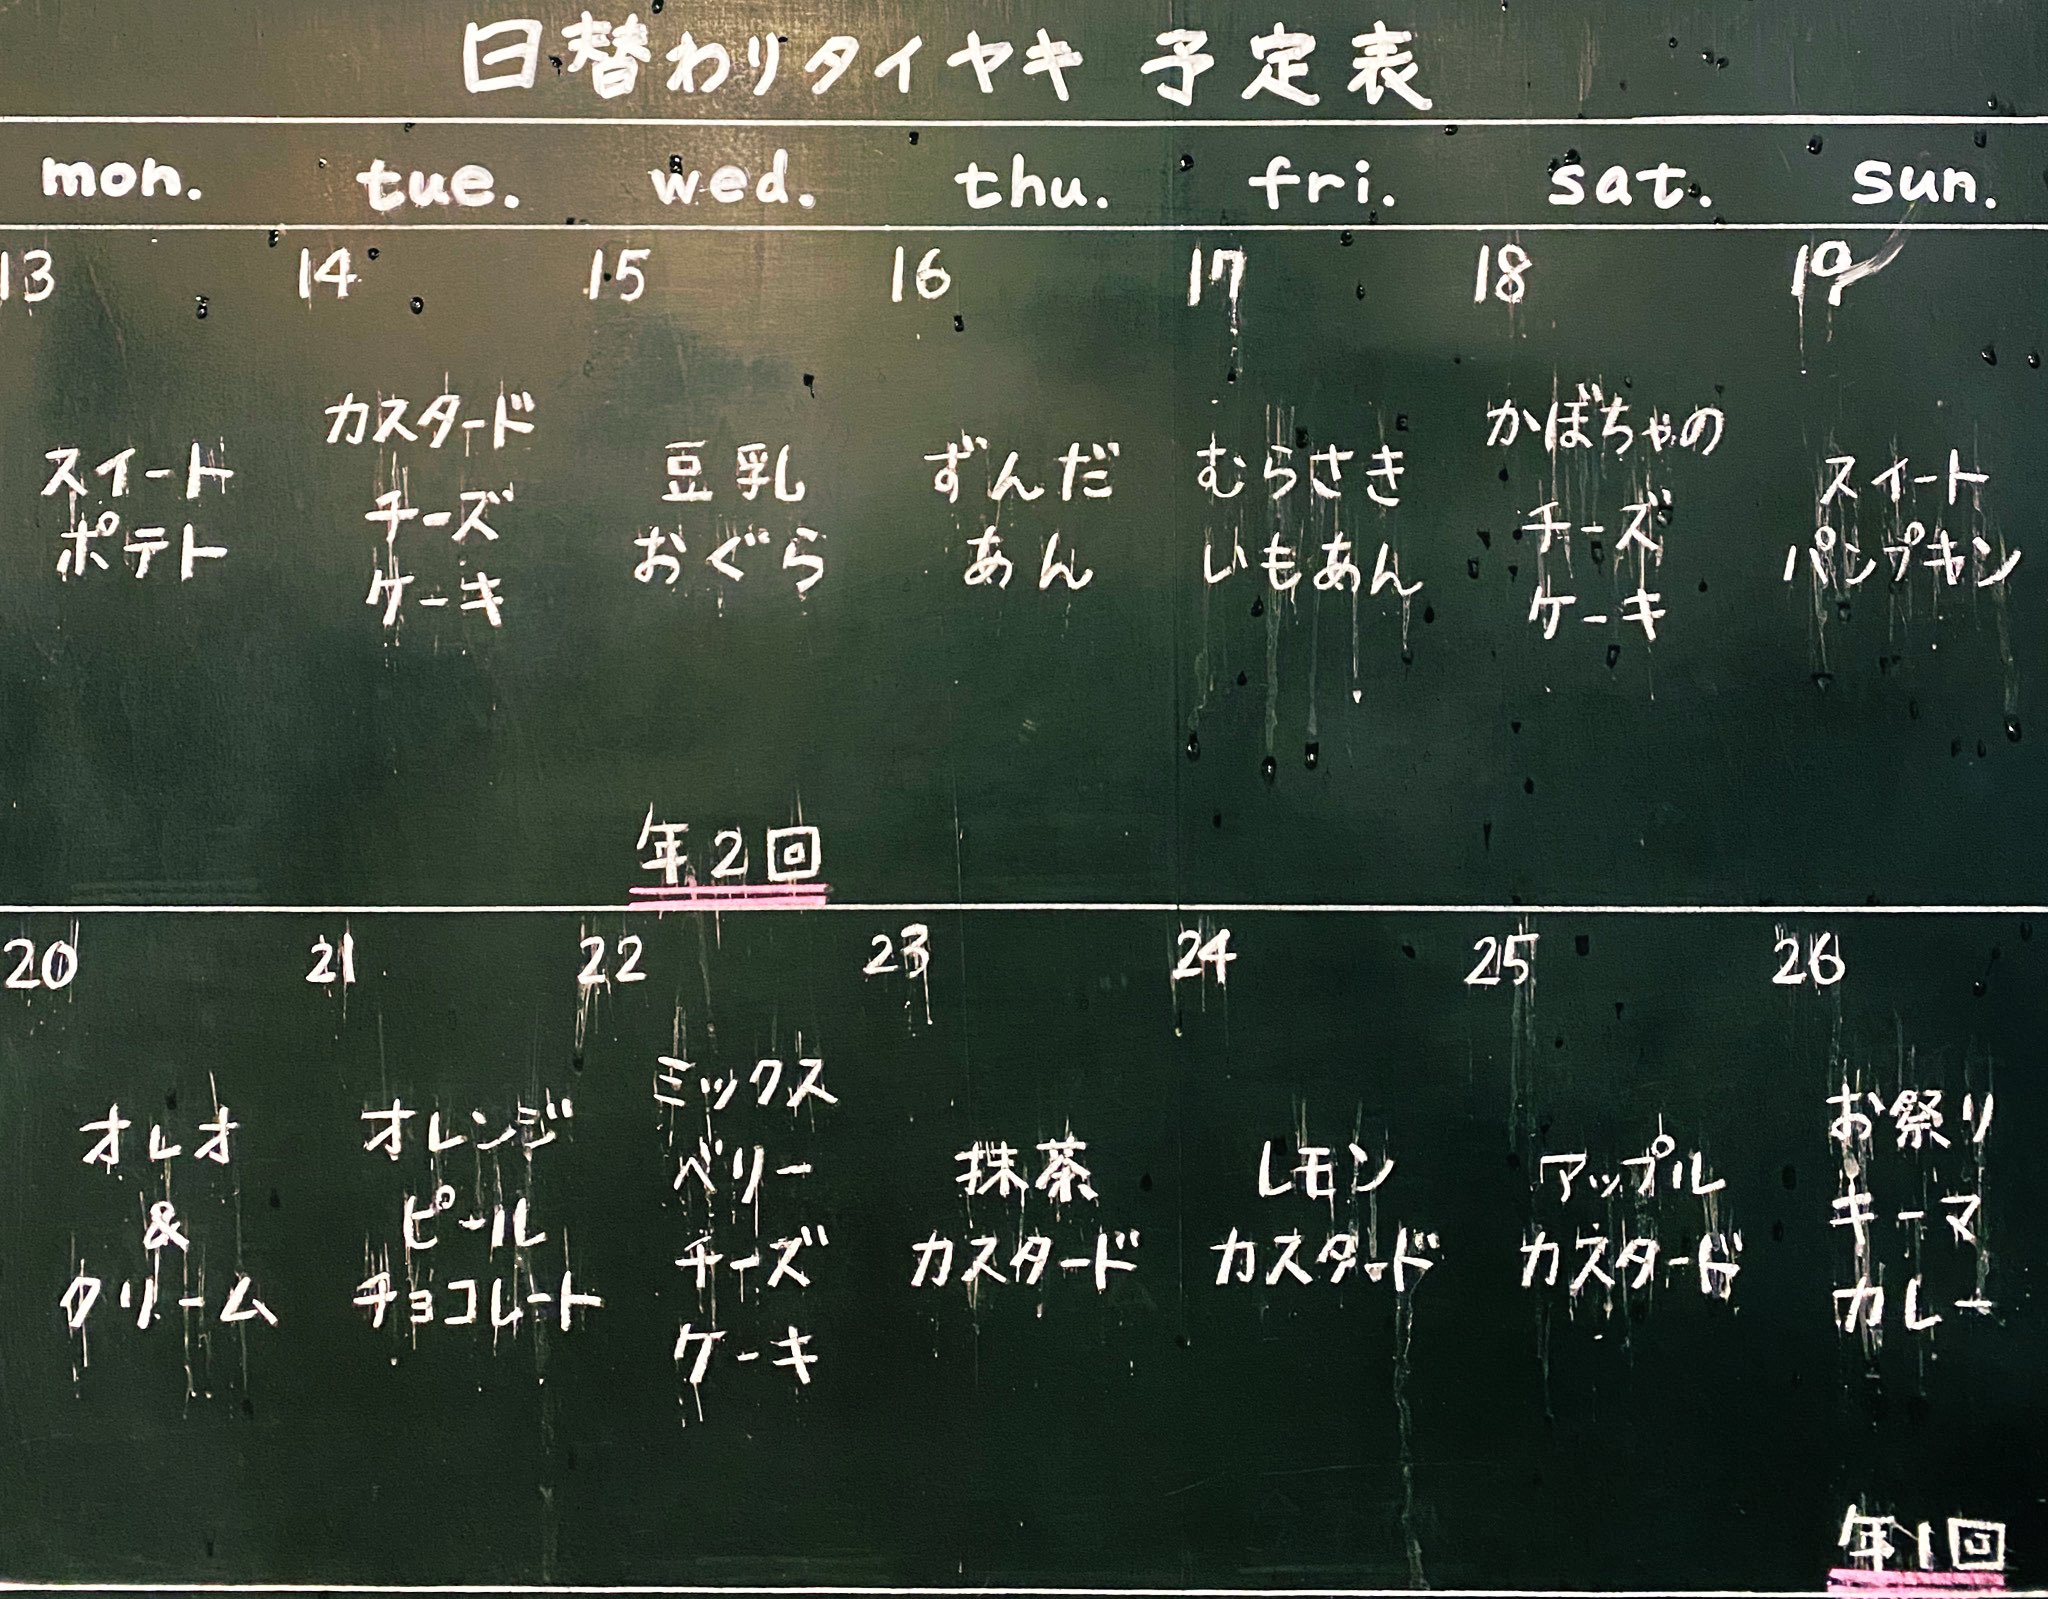 日替わりタイヤキ 予定表
mon. tue. wed. thu. fri. sat. sun.
13
スイート
ポテト
14
カスタード
チーズ
ケーキ
15
豆乳
おぐら
年2回
16
ずんだ
あん
17
むらさき
いもあん
18
かぼちゃの
チーズ
ケーキ
19
スイート
パンプキン
20
オレオ
&
クリーム
21
オレンジ
ピール
チョコレート
22
ミックス
ベリー
チーズ
ケーキ
23
抹茶
カスタード
24
レモン
カスタード
25
アップル
カスタード
26
お祭り
キーマ
カレー
年1回